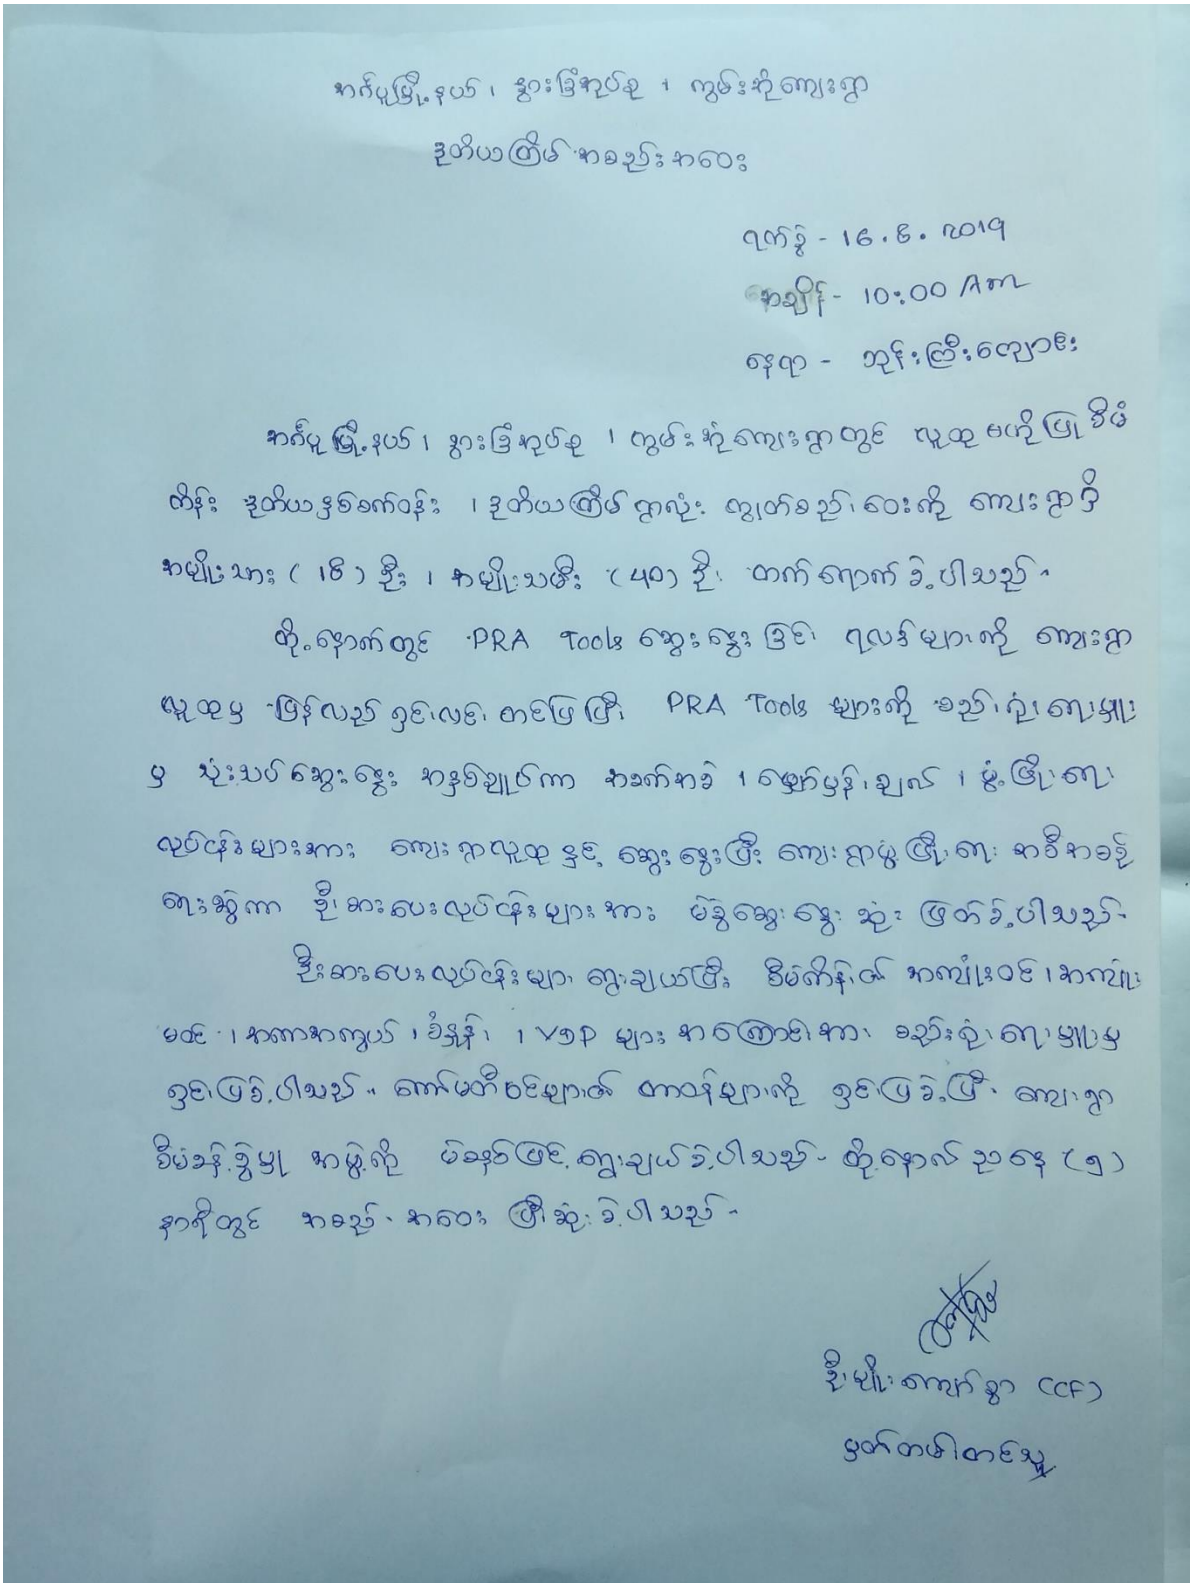 အင်္ဂပူမြို့နယ်၊ နွားခြံအုပ်စု ၊ ကွမ်းအုံကျေးရွာ
ဒုတိယကြိမ် အစည်းအဝေး
ရက်စွဲ - 16.6.2019
အချိန် - 10:00 Am
နေရာ - ဘုန်းကြီးကျောင်း
အင်္ဂပူမြို့နယ်၊ နွားခြံအုပ်စု ၊ ကွမ်းအုံကျေးရွာတွင် လူထုဗဟိုပြုစီမံ
ကိန်း ဒုတိယနှစ်စက်ဝန်း ၊ ဒုတိယကြိမ်ရွာလုံး ကျွတ်စည်းဝေးကို ကျေးရွာရှိ
အမျိုးသား ( 18 ) ဦး ၊ အမျိုးသမီး (40) ဦး တက်ရောက်ခဲ့ပါသည်။
ထို့နောက်တွင် PRA Tools ဆွေးနွေးခြင်း ရလဒ်များကို ကျေးရွာ
လူထုမှ ပြန်လည်ရှင်းလင်းတင်ပြပြီး PRA Tools များကို စည်းရုံးရေးမှူး
မှ သုံးသပ်ဆွေးနွေး အနှစ်ချုပ်ကာ အခက်အခဲ ၊ မျှော်မှန်းချက် ၊ ဖွံ့ဖြိုးရေး
လုပ်ငန်းများအား ကျေးရွာလူထုနှင့် ဆွေးနွေးပြီး ကျေးရွာဖွံ့ဖြိုးရေး အစီအစဉ်
ရေးဆွဲကာ ဦးစားပေးလုပ်ငန်းများအား မဲခွဲဆွေးနွေး ဆုံးဖြတ်ခဲ့ပါသည်။
ဦးစားပေးလုပ်ငန်းများ ရွေးချယ်ပြီး စီမံကိန်း၏ အကျုံးဝင်၊ အကျုံး
မဝင် ၊ အကာအကွယ် ၊ စံနှုန်း ၊ VDP များ အကြောင်းအား စည်းရုံးရေးမှူးမှ
ရှင်းပြခဲ့ပါသည်။ ကော်မတီဝင်များ၏ တာဝန်များကို ရှင်းပြခဲ့ပြီး ကျေးရွာ
စီမံခန့်ခွဲမှု အဖွဲ့ကို မဲစနစ်ဖြင့် ရွေးချယ်ခဲ့ပါသည်။ ထို့နောက် ညနေ (၅)
နာရီတွင် အစည်းအဝေး ပြီးဆုံးခဲ့ပါသည်။
ဦးမျိုးကျော်စွာ (CF)
မှတ်တမ်းတင်သူ